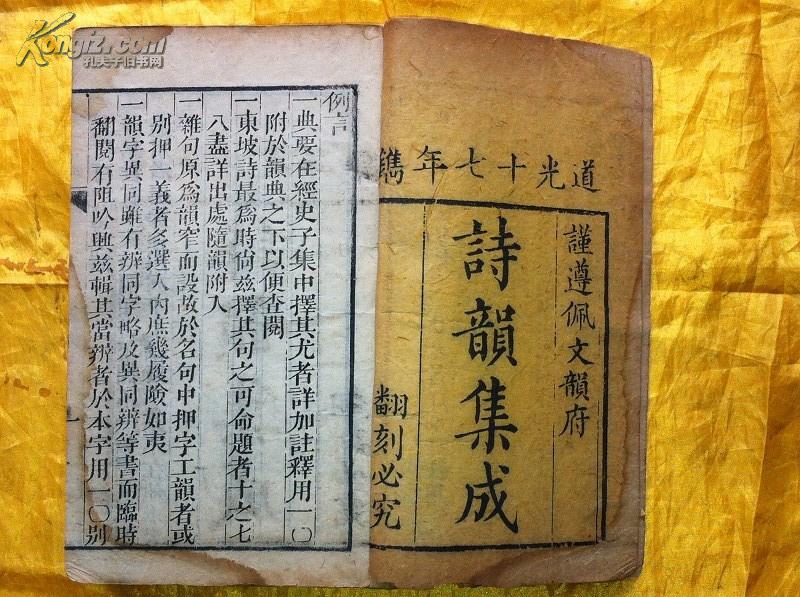 道光十七年鐫
謹遵佩文韻府
詩韻集成
翻刻必究
例言
一典要在經史子集中擇其尤者詳加註釋用一〇
附於韻典之下以便查閱
一東坡詩最爲時尙兹擇其句之可命題者十之七
八盡詳出處隨韻附入
一雜句原爲韻窄而設故於名句中押字工韻者或
別押一義者多選入內庶幾履險如夷
一韻字異同雖有辨同字略及異同辨等書而臨時
翻閱有阻吟興兹輯其當辨者於本字用一〇別
Kongfz.com
孔夫子旧书网